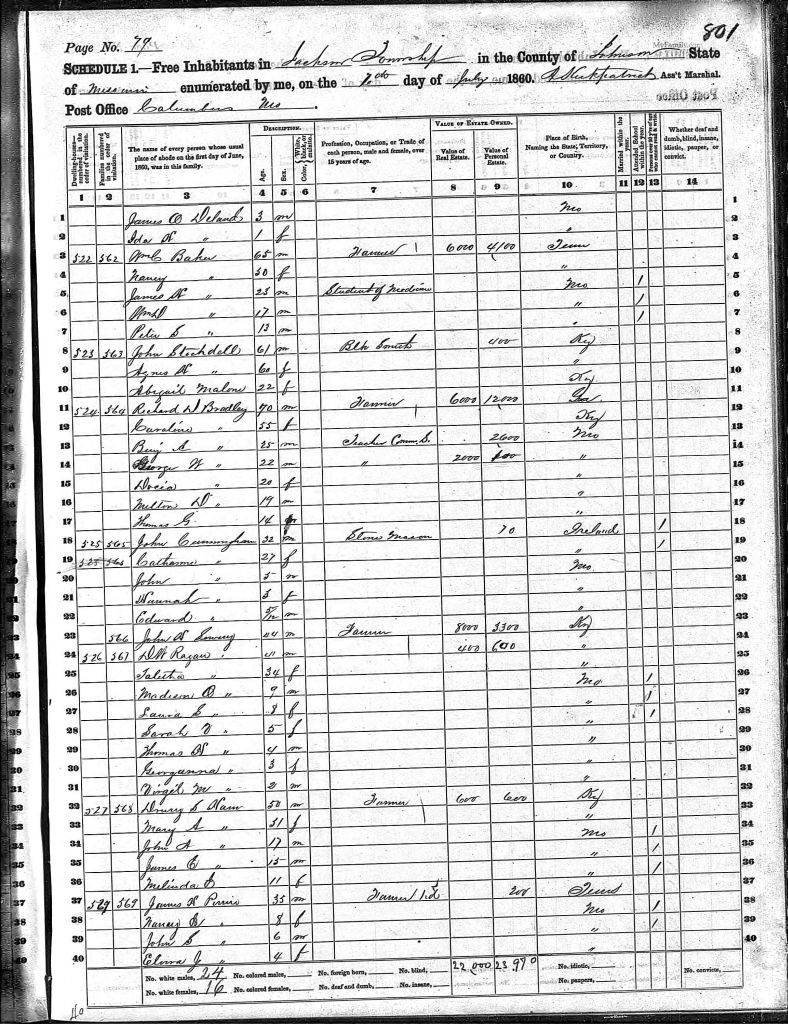 801
Page No. 79
SCHEDULE 1.—Free Inhabitants in Jackson Township in the County of Johnson State
of Missouri enumerated by me, on the 10th day of July 1860. Kirkpatrick Ass't Marshal.
Post Office Columbus Mo
Dwelling-houses—numbered in the order of visitation. Families numbered in the order of visitation. The name of every person whose usual place of abode on the first day of June, 1860, was in this family. DESCRIPTION. Age. Sex. Color, White, black, or mulatto. Profession, Occupation, or Trade of each person, male and female, over 15 years of age. VALUE OF ESTATE OWNED. Value of Real Estate. Value of Personal Estate. Place of Birth, Naming the State, Territory, or Country. Married within the year. Attended School within the year. Persons over 20 y'rs of age who cannot read & write. Whether deaf and dumb, blind, insane, idiotic, pauper, or convict.
1 2 3 4 5 6 7 8 9 10 11 12 13 14
1 James O Deland 3 m Mo 1
2 Ida " 1 f " 2
3 522 562 Wm C Baker 65 m Farmer 6000 4100 Tenn 3
4 Nancy " 50 f " 4
5 James " 23 m Student of Medicine Mo 1 5
6 Wm D " 17 m " 1 6
7 Peter S " 13 m " 1 7
8 523 563 John Stockdell 61 m Blk Smith 400 Ky 8
9 Agnes " 60 f " 9
10 Abigail Malone 22 f Ky 10
11 524 564 Richard D Bradley 70 m Farmer 6000 12000 11
12 Caroline " 55 f Ky 12
13 Benj A " 25 m Teacher Comm. S. 2600 Mo 13
14 George W " 22 m " 2000 " 14
15 Docia " 20 f " 15
16 Milton D " 19 m " 16
17 Thomas G. 14 m " 17
18 525 565 John Cunningham 32 m Stone Mason 70 Ireland 1 18
19 525 565 Catharine " 27 f " 1 19
20 John " 5 m Mo 20
21 Hannah " 3 f " 21
22 Edward " 5/12 m " 22
23 566 John Lowery 44 m Farmer 8000 3300 Ky 23
24 526 567 D W Ragan " 41 m 400 600 " 24
25 Talitha " 34 f " 25
26 Madison O " 9 m Mo 1 26
27 Laura E " 8 f " 1 27
28 Sarah V " 5 f " 1 28
29 Thomas " 4 m " 29
30 Georganna " 3 f " 30
31 Virgil M " 2 m " 31
32 527 568 Drury S Ham 50 m Farmer 600 600 Ky 32
33 Mary A " 51 f " 33
34 John A " 17 m Mo 1 34
35 James E " 15 m " 1 35
36 Melinda " 11 f " 1 36
37 529 569 James Pirrie 35 m Farmer 200 Tenn 37
38 Nancy E " 8 f Mo 1 38
39 John S " 6 m " 1 39
40 " 4 f " 40
No. white males, 24 No. colored males, No. foreign born, No. blind, 22,000 23,970 No. idiotic, No. convicts,
No. white females, 16 No. colored females, No. deaf and dumb, No. insane, No. paupers,
40